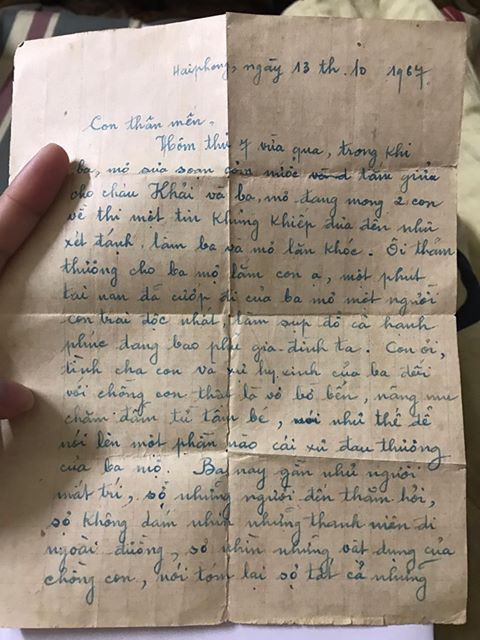 Haiphong, ngày 13 th. 10 1967
Con thân mến.
Hôm thứ 7 vừa qua, trong khi
ba, mẹ sửa soạn cơm nước tắm giửa
cho cháu Khải và ba, mẹ đang mong 2 con
về thì một tin khủng khiếp đưa đến như
xét đánh, làm ba và mẹ lăn khóc. Ôi thảm
thương cho ba mẹ lắm con ạ, một phut
tai nạn đã cướp đi của ba mẹ một người
con trai độc nhất, làm sụp đổ cả hạnh
phúc đang bao phủ gia đình ta. Con ơi,
tình cha con và sự hy sinh của ba đối
với chồng con thật là vô bờ bến, nâng niu
chăm dẫm từ tấm bé, nói như thế để
nói lên một phần nào cái sự đau thương
của ba mẹ. Ba nay gần như người
mất trí, sợ những người đến thăm hỏi,
sợ không dám nhìn những thanh niên đi
ngoài đường, sợ nhìn những vật dụng của
chồng con, nói tóm lại sợ tất cả những